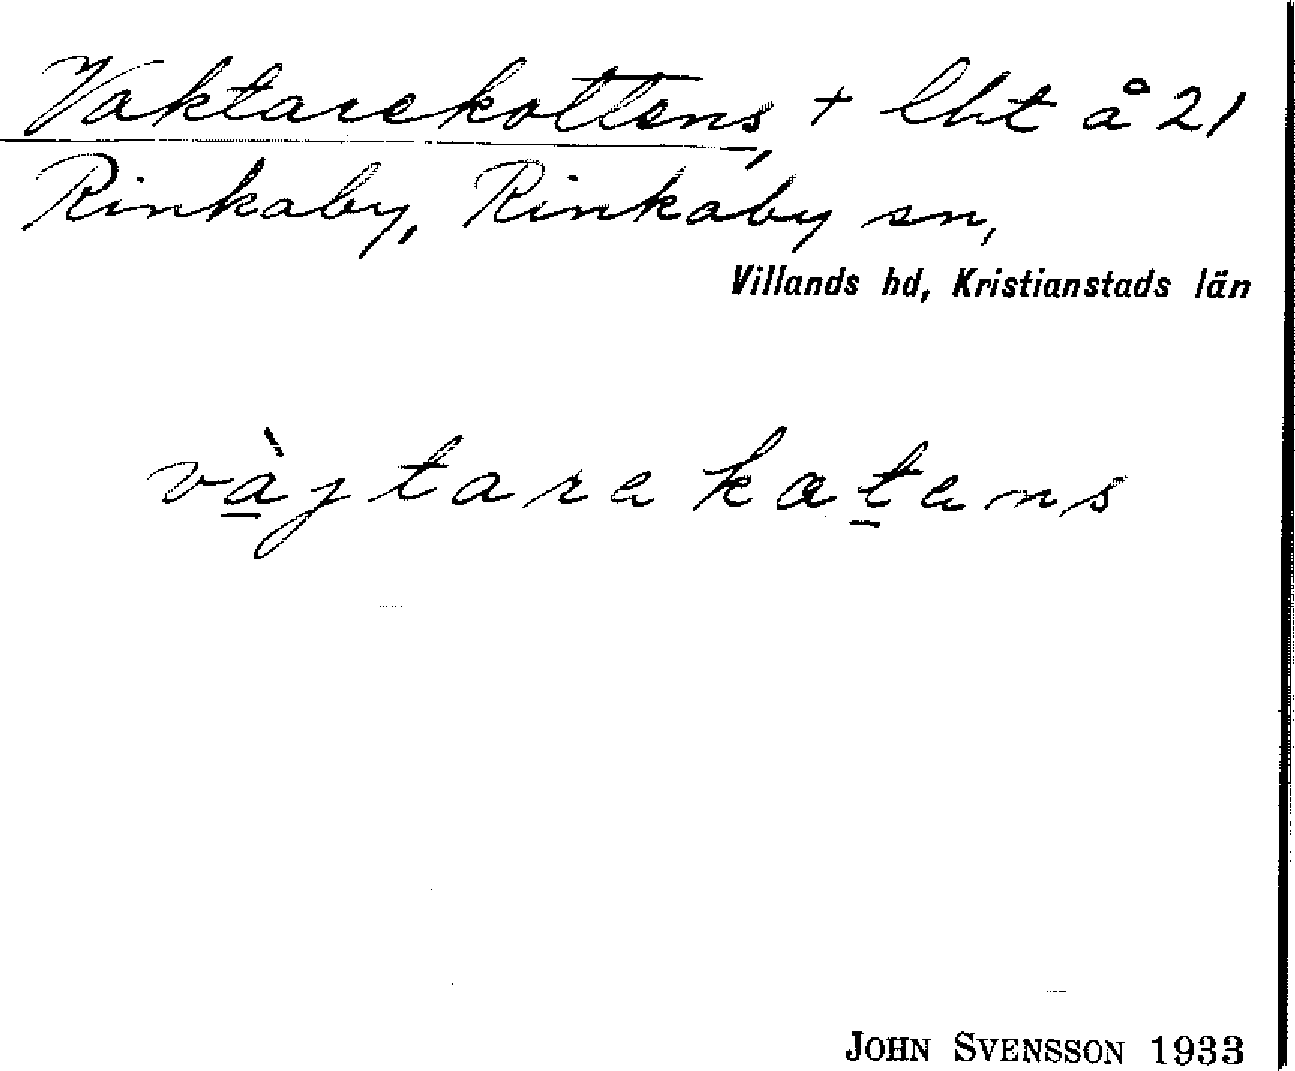 Vaktarekottens, + lht å 21
Rinkaby, Rinkaby sn,
Villands hd, Kristianstads län
vàjtare katens
JOHN SVENSSON 1933